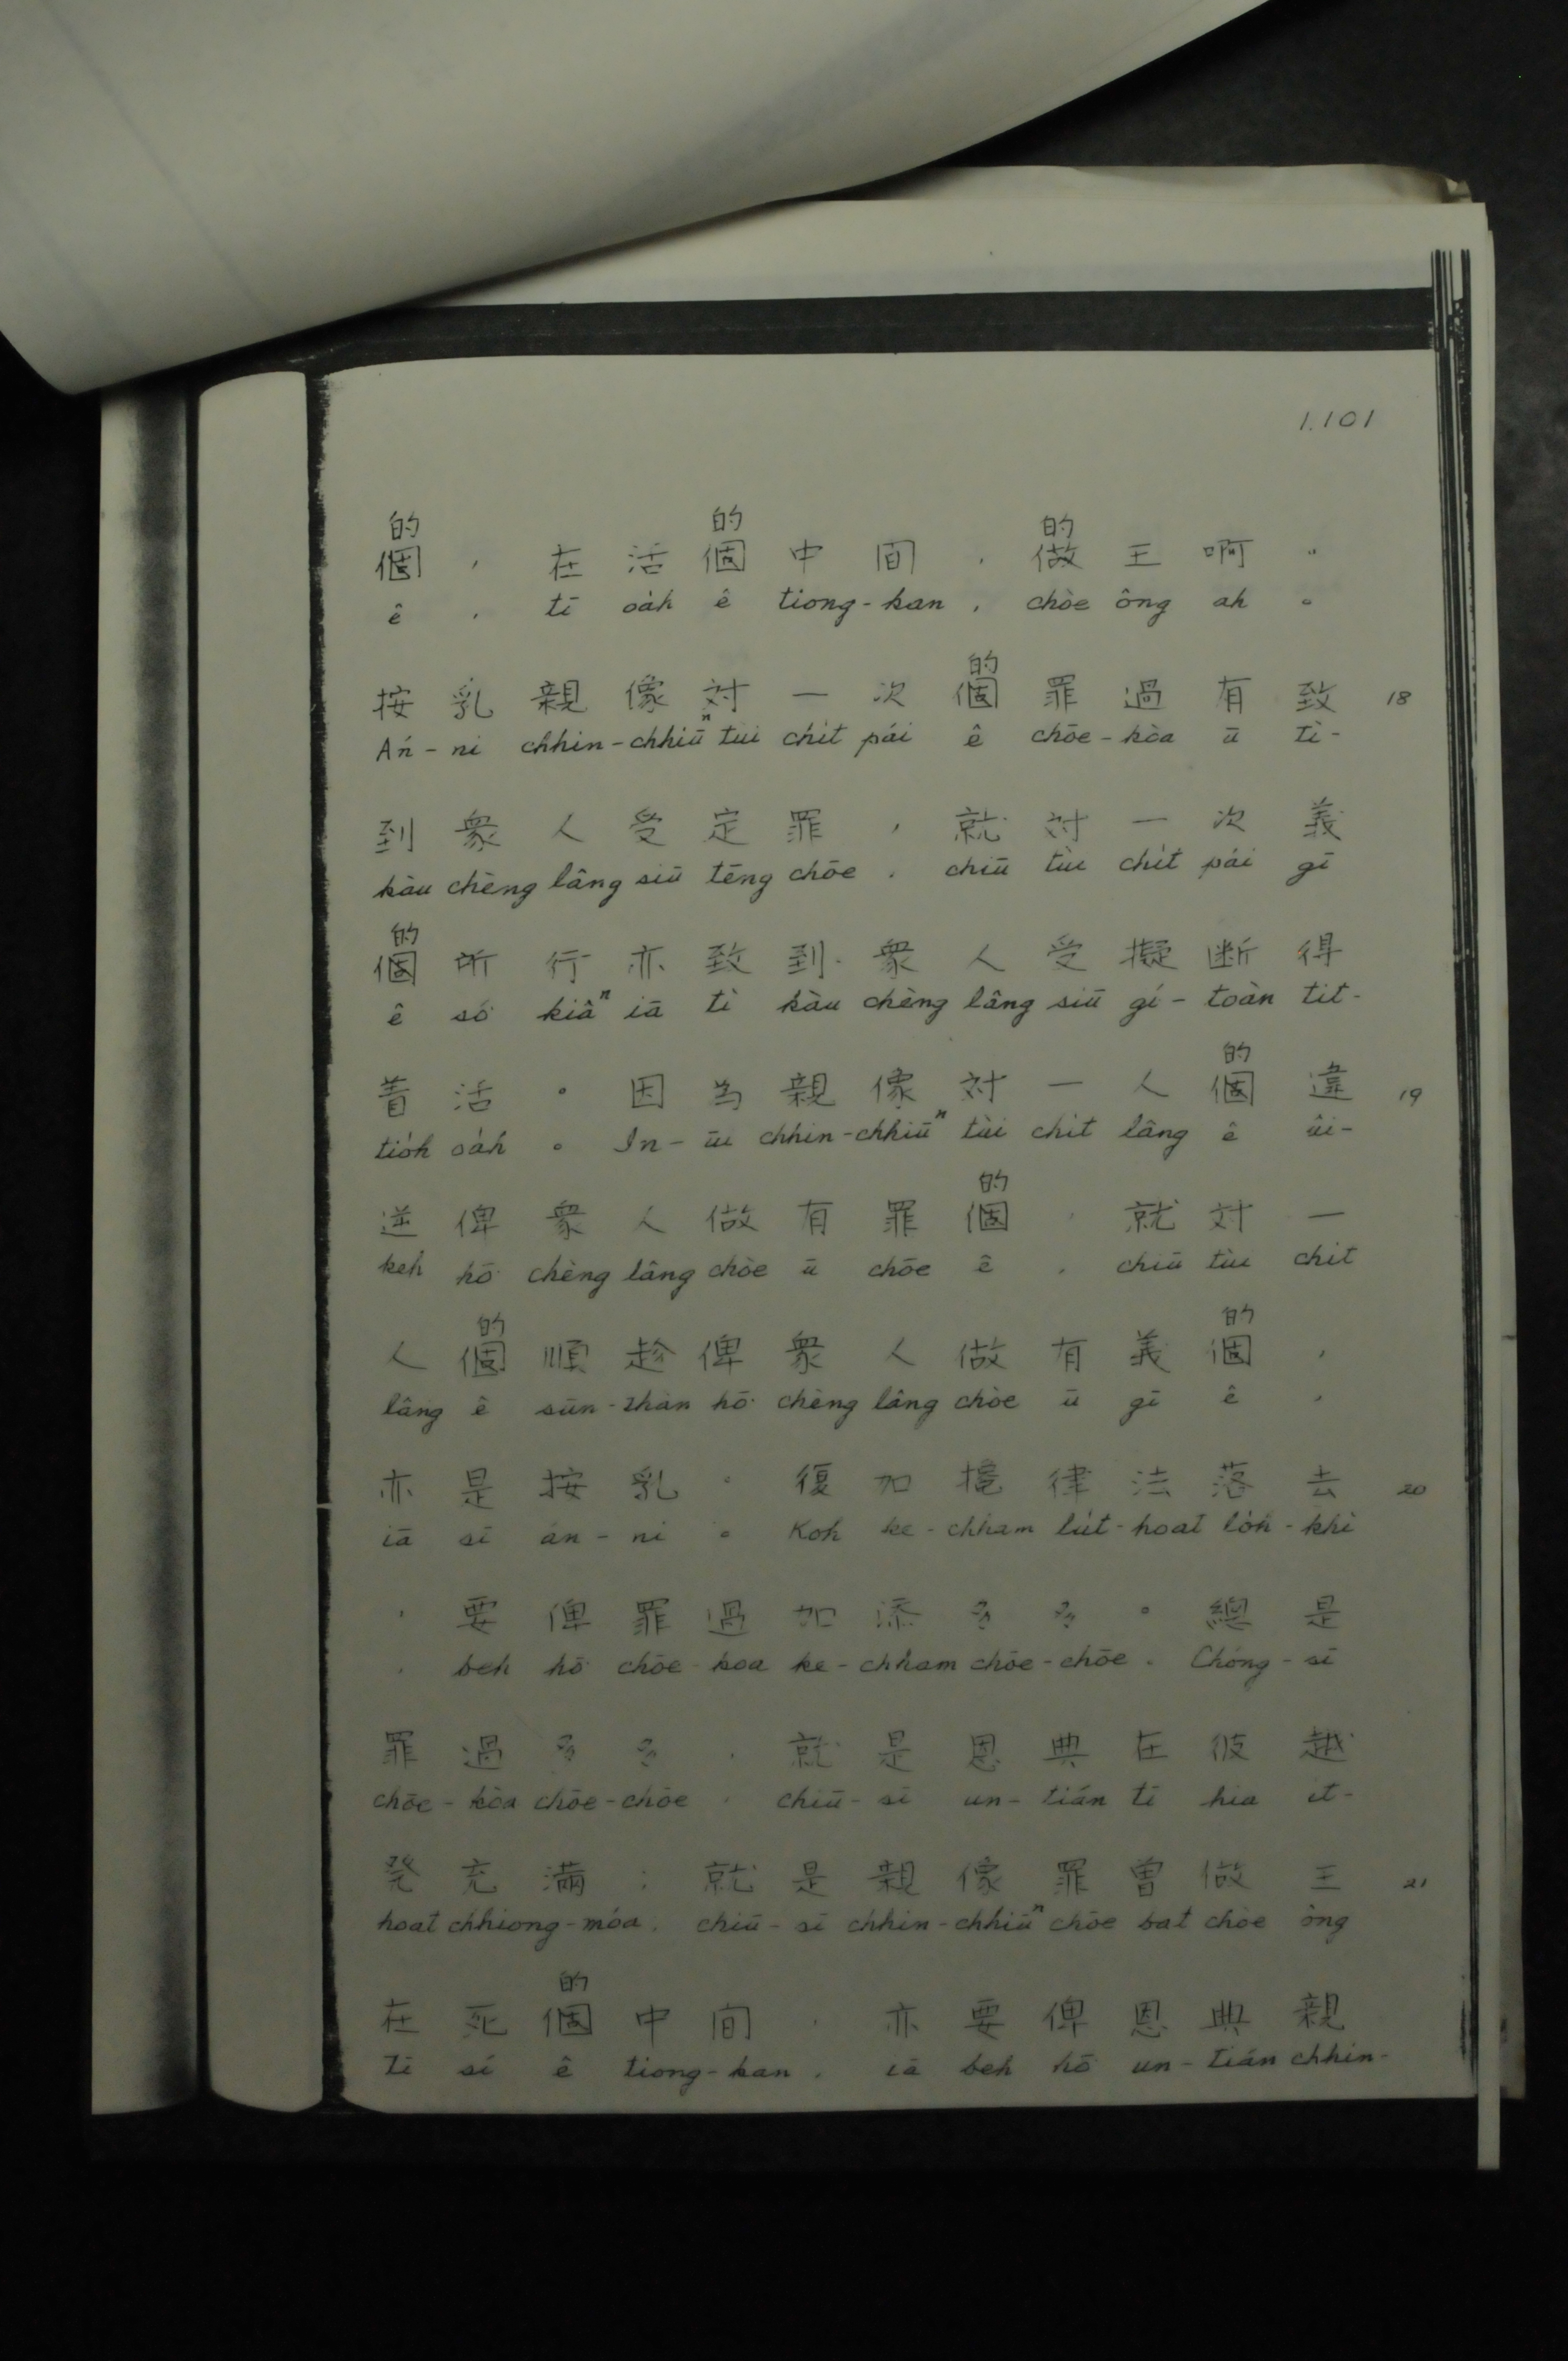 1.101
的 的 的
個 , 在 活 個 中 间 , 做 王 啊 。
ê , tī oa̍h ê tiong-kan , chòe ông ah 。
的
按 乳 親 像 対 一 次 個 罪 過 有 致 18
Án-ni chhin-chhiūⁿ tùi chi̍t pái ê chōe-kòa ū tì-
到 衆 人 受 定 罪 , 就 対 一 次 義
kàu chèng lâng siū tēng chōe , chiū tùi chi̍t pái gī
的
個 所 行 亦 致 到 衆 人 受 擬 断 得
ê só͘ kiâⁿ iā tì kàu chèng lâng siū gí-toàn tit-
的
着 活 。 因 为 親 像 対 一 人 個 違 19
tio̍h oa̍h 。 In-ūi chhin-chhiūⁿ tùi chi̍t lâng ê ûi-
的
逆 俾 衆 人 做 有 罪 個 , 就 対 一
keh hō͘ chèng lâng chòe ū chōe ê , chiū tùi chi̍t
的 的
人 個 順 趁 俾 衆 人 做 有 義 個 ,
lâng ê sūn-thàn hō͘ chèng lâng chòe ū gī ê ,
亦 是 按 乳 。 復 加 律 法 落 去 20
iā sī án-ni 。 Koh ke-chham lu̍t-hoat lo̍h-khì
, 要 俾 罪 過 加 添 多 多 。 總 是
, beh hō͘ chōe-kòa ke-chham chōe-chōe . Chóng-sī
罪 過 多 多 , 就 是 恩 典 在 彼 越
chōe-kòa chōe-chōe , chiū-sī un-tián tī hia it-
発 充 滿 ; 就 是 親 像 罪 曾 做 王 21
hoat chhiong-móa ; chiū-sī chhin-chhiūⁿ chōe bat chòe ông
的
在 死 個 中 间 , 亦 要 俾 恩 典 親
tī sí ê tiong-kan , iā beh hō͘ un-tián chhin-